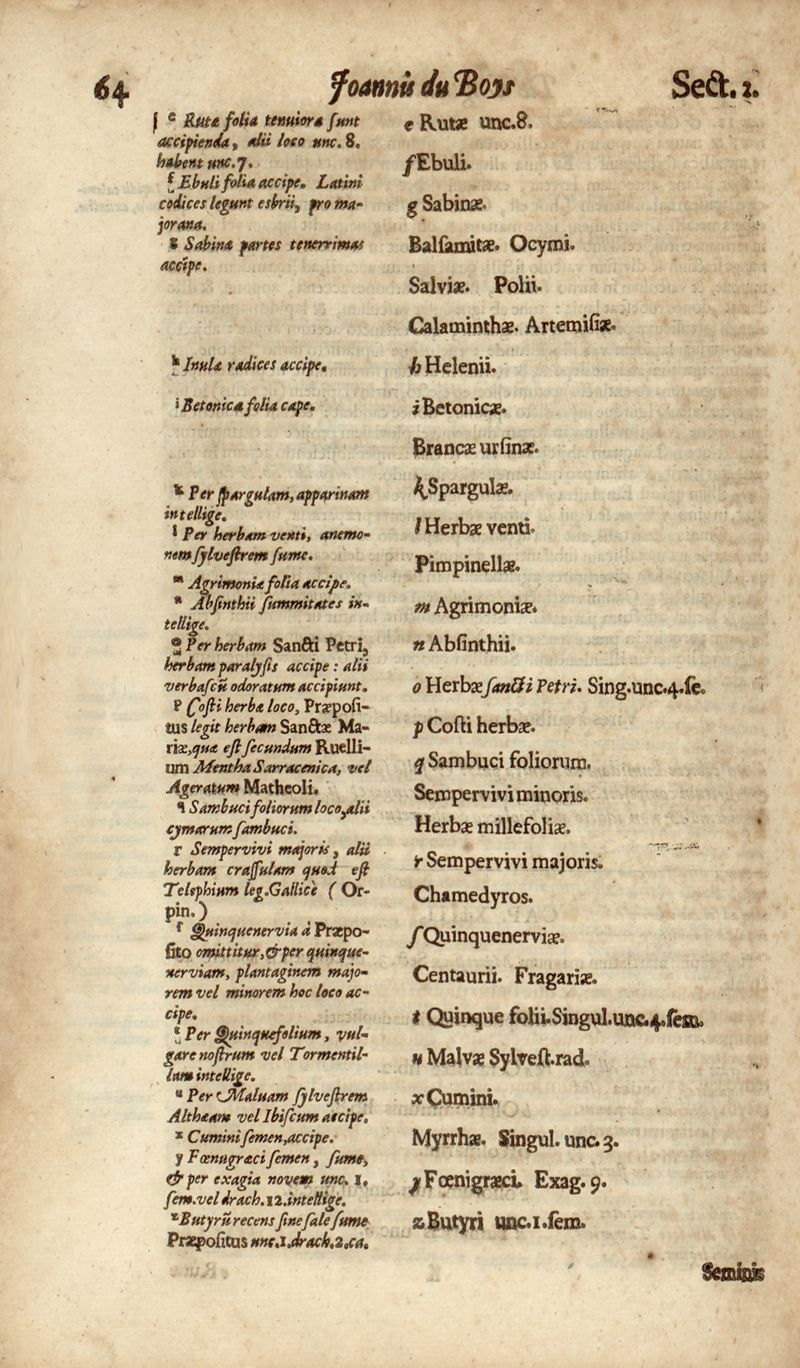 64 Joannis du Boys Sect. 2.
e Rutæ folia tenuiora ſunt
accipienda, alii loco unc. 8.
habent unc. 7.
f Ebuli folia accipe. Latini
codices legunt esbrii, pro ma-
jorana.
g Sabinæ partes tenerrimas
accipe.
h Inulæ radices accipe.
i Betonicæ folia cape.
k Per ſpargulam, apparinam
intellige.
l Per herbam venti, anemo-
nem ſylveſtrem ſume.
m Agrimoniæ folia accipe.
n Abſinthii ſummitates in-
tellige.
o Per herbam Sancti Petri,
herbam paralyſis accipe : alii
verbaſcũ odoratum accipiunt.
p Coſti herbæ loco, Præpoſi-
tus legit herbam Sanctæ Ma-
riæ, quæ eſt ſecundum Ruelli-
um Mentha Sarracenica, vel
Ageratum Matheoli.
q Sambuci foliorum loco, alii
cymarum ſambuci.
r Sempervivi majoris, alii
herbam craſſulam quod eſt
Telephium leg. Gallicè (Or-
pin.)
ſ Quinquenervia à Præpo-
ſito omittitur, & per quinque-
nerviam, plantaginem majo-
rem vel minorem hoc loco ac-
cipe.
t Per Quinquefolium, vul-
gare noſtrum vel Tormentil-
lam intellige.
u Per Malvam ſylveſtrem
Althæam vel Ibiſcum accipe.
x Cumini ſemen, accipe.
y Fœnugræci ſemen, ſume,
& per exagia novem unc. 1.
ſem. vel drach. 12. intellige.
z Butyrũ recens ſine ſale ſume
Præpoſitus unc. 1. drach. 2. ca.
e Rutæ unc. 8.
f Ebuli.
g Sabinæ.
Balſamitæ. Ocymi.
Salviæ. Polii.
Calaminthæ. Artemiſiæ.
h Helenii.
i Betonicæ.
Brancæ urſinæ.
k Spargulæ.
l Herbæ venti.
Pimpinellæ.
m Agrimoniæ.
n Abſinthii.
o Herbæ ſancti Petri. Sing. unc. 4. ſe.
p Coſti herbæ.
q Sambuci foliorum.
Sempervivi minoris.
Herbæ millefoliæ.
r Sempervivi majoris.
Chamedyros.
ſ Quinquenerviæ.
Centaurii. Fragariæ.
t Quinque folii. Singul. unc. 4. ſem.
u Malvæ Sylveſt. rad.
x Cumini.
Myrrhæ. Singul. unc. 3.
y Fœnigræci. Exag. 9.
z Butyri unc. 1. ſem.
Seminis